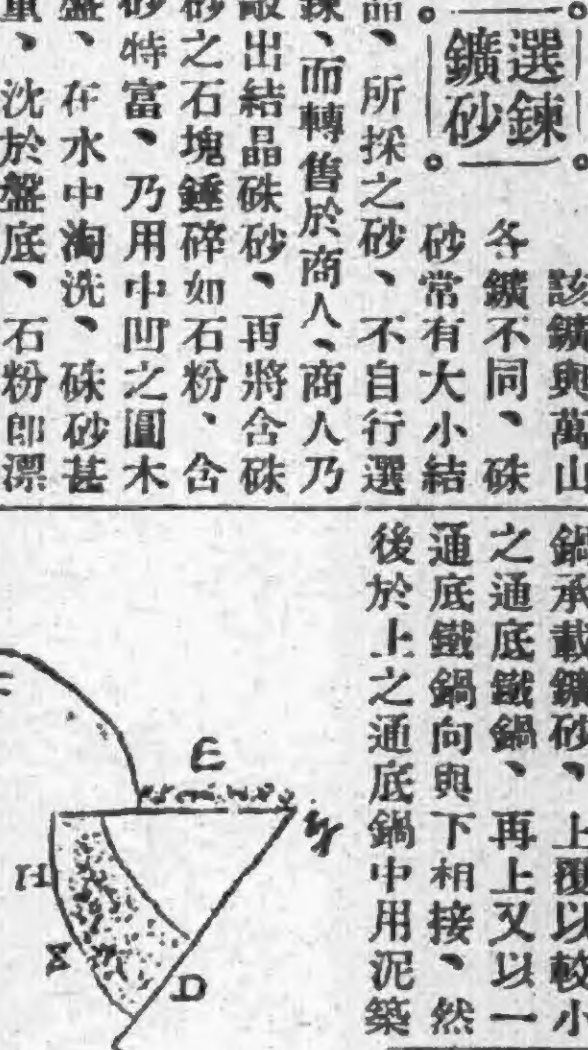 選鍊
鑛砂
該鑛與萬山
各鑛不同、硃
砂常有大小結
晶、所採之砂、不自行選
鍊、而轉售於商人、商人乃
敲出結晶硃砂、再將含硃
砂之石塊錘碎如石粉、含
砂特富、乃用中凹之圓木
盤、在水中淘洗、硃砂甚
重、沈於盤底、石粉即漂
鍋承載鑛砂、上覆以較小
之通底鐵鍋、再上又以一
通底鐵鍋向與下相接、然
後於上之通底鍋中用泥築
E
H
D